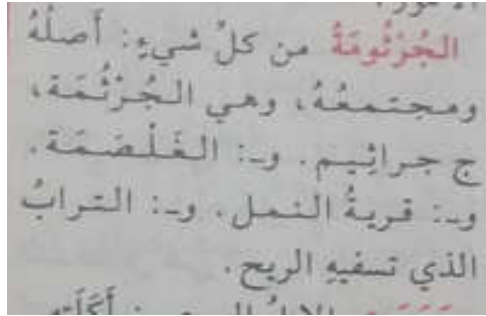 الجُرْثُومَةُ من كلِّ شيءٍ: أَصلُهُ
ومجتمعُهُ، وهي الجُرْثُمَة،
ج جراثِيم. و-: الغَلْصَمَة.
و-: قريةُ النمل. و-: الترابُ
الذي تسفيهِ الريح.